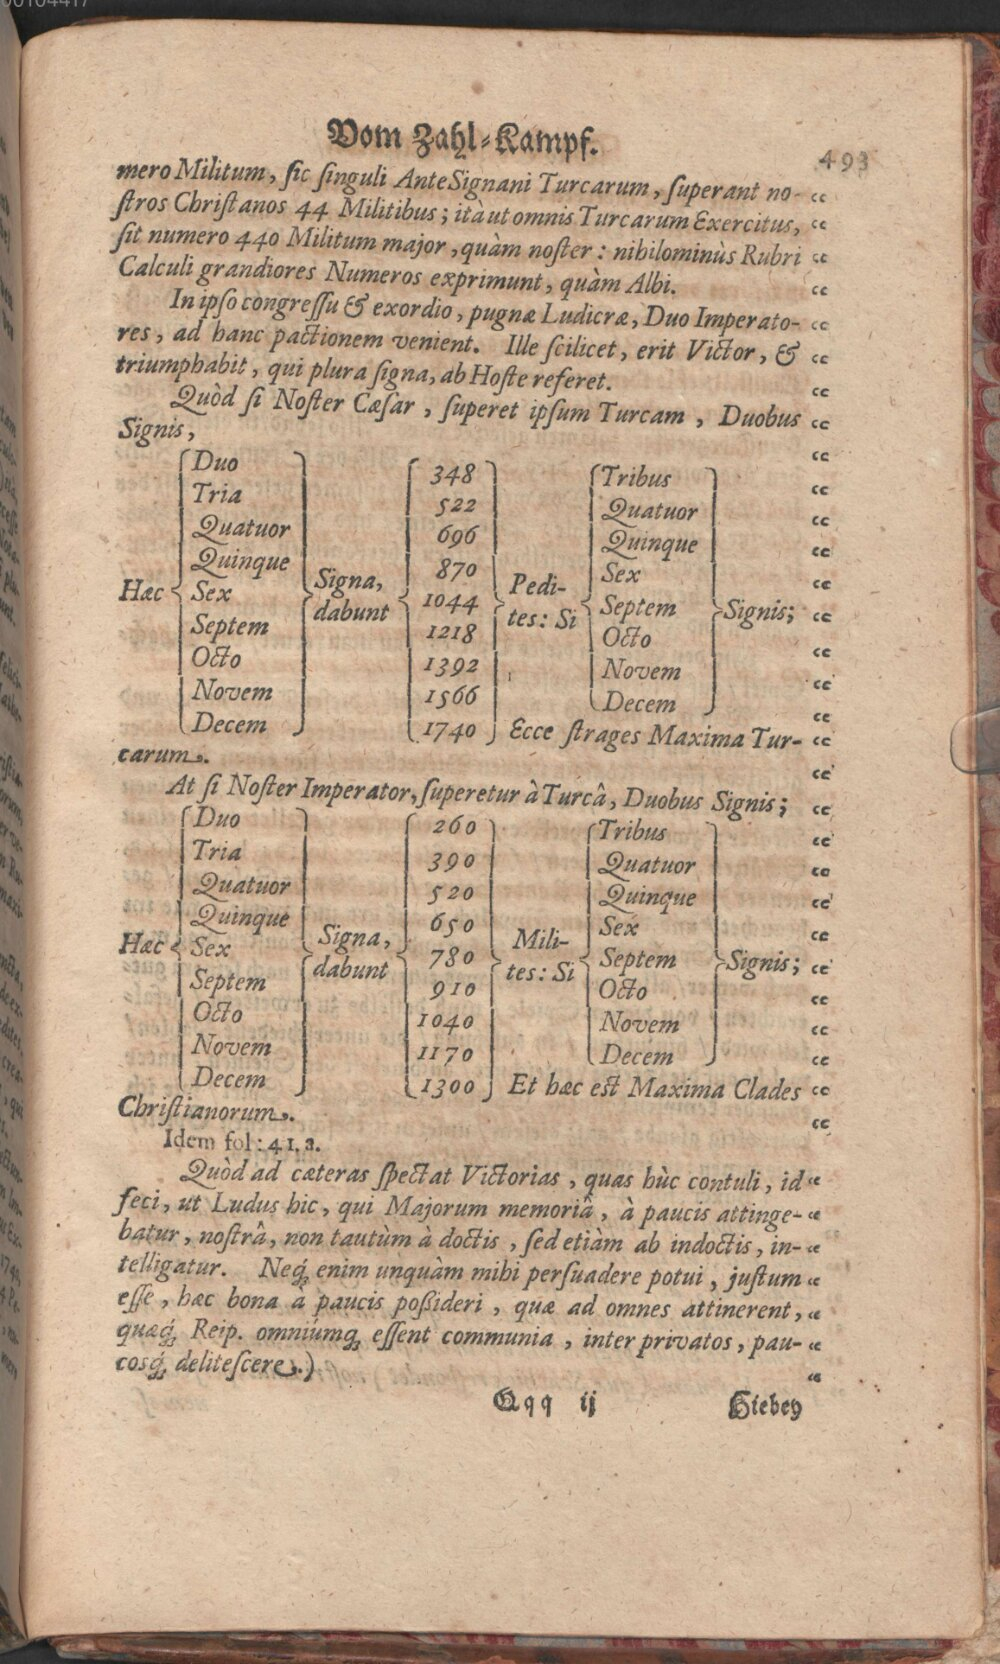 00104417
Vom Zahl-Kampf.
493
mero Militum, ſic ſinguli AnteSignani Turcarum, ſuperant no-
ſtros Chriſtanos 44 Militibus; itàut omnis Turcarum Exercitus,
ſit numero 440 Militum major, quàm noſter: nihilominùs Rubri
Calculi grandiores Numeros exprimunt, quàm Albi.
In ipſo congreſſu & exordio, pugnæ Ludicræ, Duo Imperato-
res, ad hanc pactionem venient. Ille ſcilicet, erit Victor, &
triumphabit, qui plura ſigna, ab Hoſte referet.
Quòd ſi Noſter Cæſar, ſuperet ipſum Turcam, Duobus
Signis,
Hæc
Duo
Tria
Quatuor
Quinque
Sex
Septem
Octo
Novem
Decem
Signa,
dabunt
348
522
696
870
1044
1218
1392
1566
1740
Pedi-
tes: Si
Tribus
Quatuor
Quinque
Sex
Septem
Octo
Novem
Decem
Signis;
Ecce ſtrages Maxima Tur-
carum.
At ſi Noſter Imperator, ſuperetur à Turcâ, Duobus Signis;
Hæc
Duo
Tria
Quatuor
Quinque
Sex
Septem
Octo
Novem
Decem
Signa,
dabunt
260
390
520
650
780
910
1040
1170
1300
Mili-
tes: Si
Tribus
Quatuor
Quinque
Sex
Septem
Octo
Novem
Decem
Signis;
Et hæc eſt Maxima Clades
Chriſtianorum.
Idem fol: 41. a.
Quòd ad cæteras ſpectat Victorias, quas hùc contuli, id
feci, ut Ludus hic, qui Majorum memoriâ, à paucis attinge-
batur, noſtrâ, non tautùm à doctis, ſed etiàm ab indoctis, in-
telligatur. Neq́ꝫ enim unquàm mihi perſuadere potui, juſtum
eſſe, hæc bona à paucis poßideri, quæ ad omnes attinerent,
quæq́ꝫ Reip. omniúmqꝫ eſſent communia, inter privatos, pau-
cosq́ꝫ deliteſcere.)
Qqq ij
Hiebey